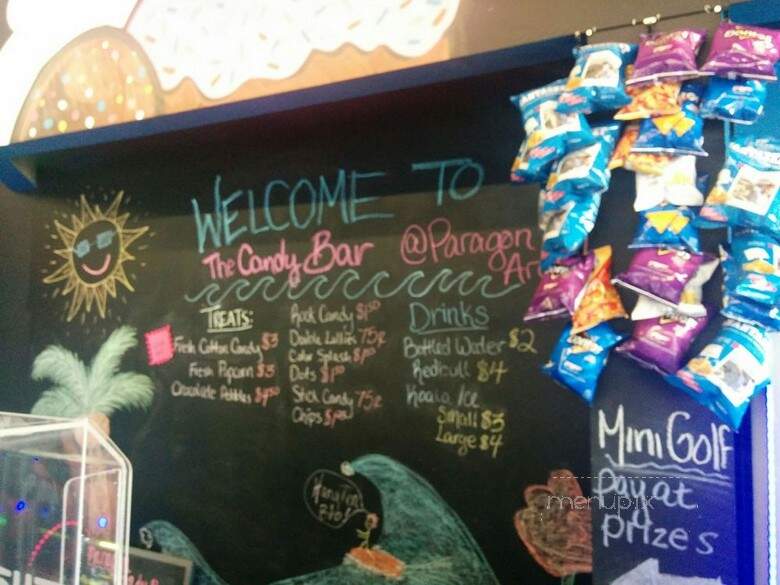 WELCOME TO
The Candy Bar @Paragon
TREATS:
Fresh Cotton Candy $3
Fresh Popcorn $3
Chocolate Pebbles
Rock Candy $1.50
Double Lollies 75¢
Color Splash
Dots
Stick Candy 75¢
Chips
Drinks
Bottled Water $2
Redbull $4
Koala Ice
Small $3
Large $4
Mini Golf
pay at
prizes
menupix